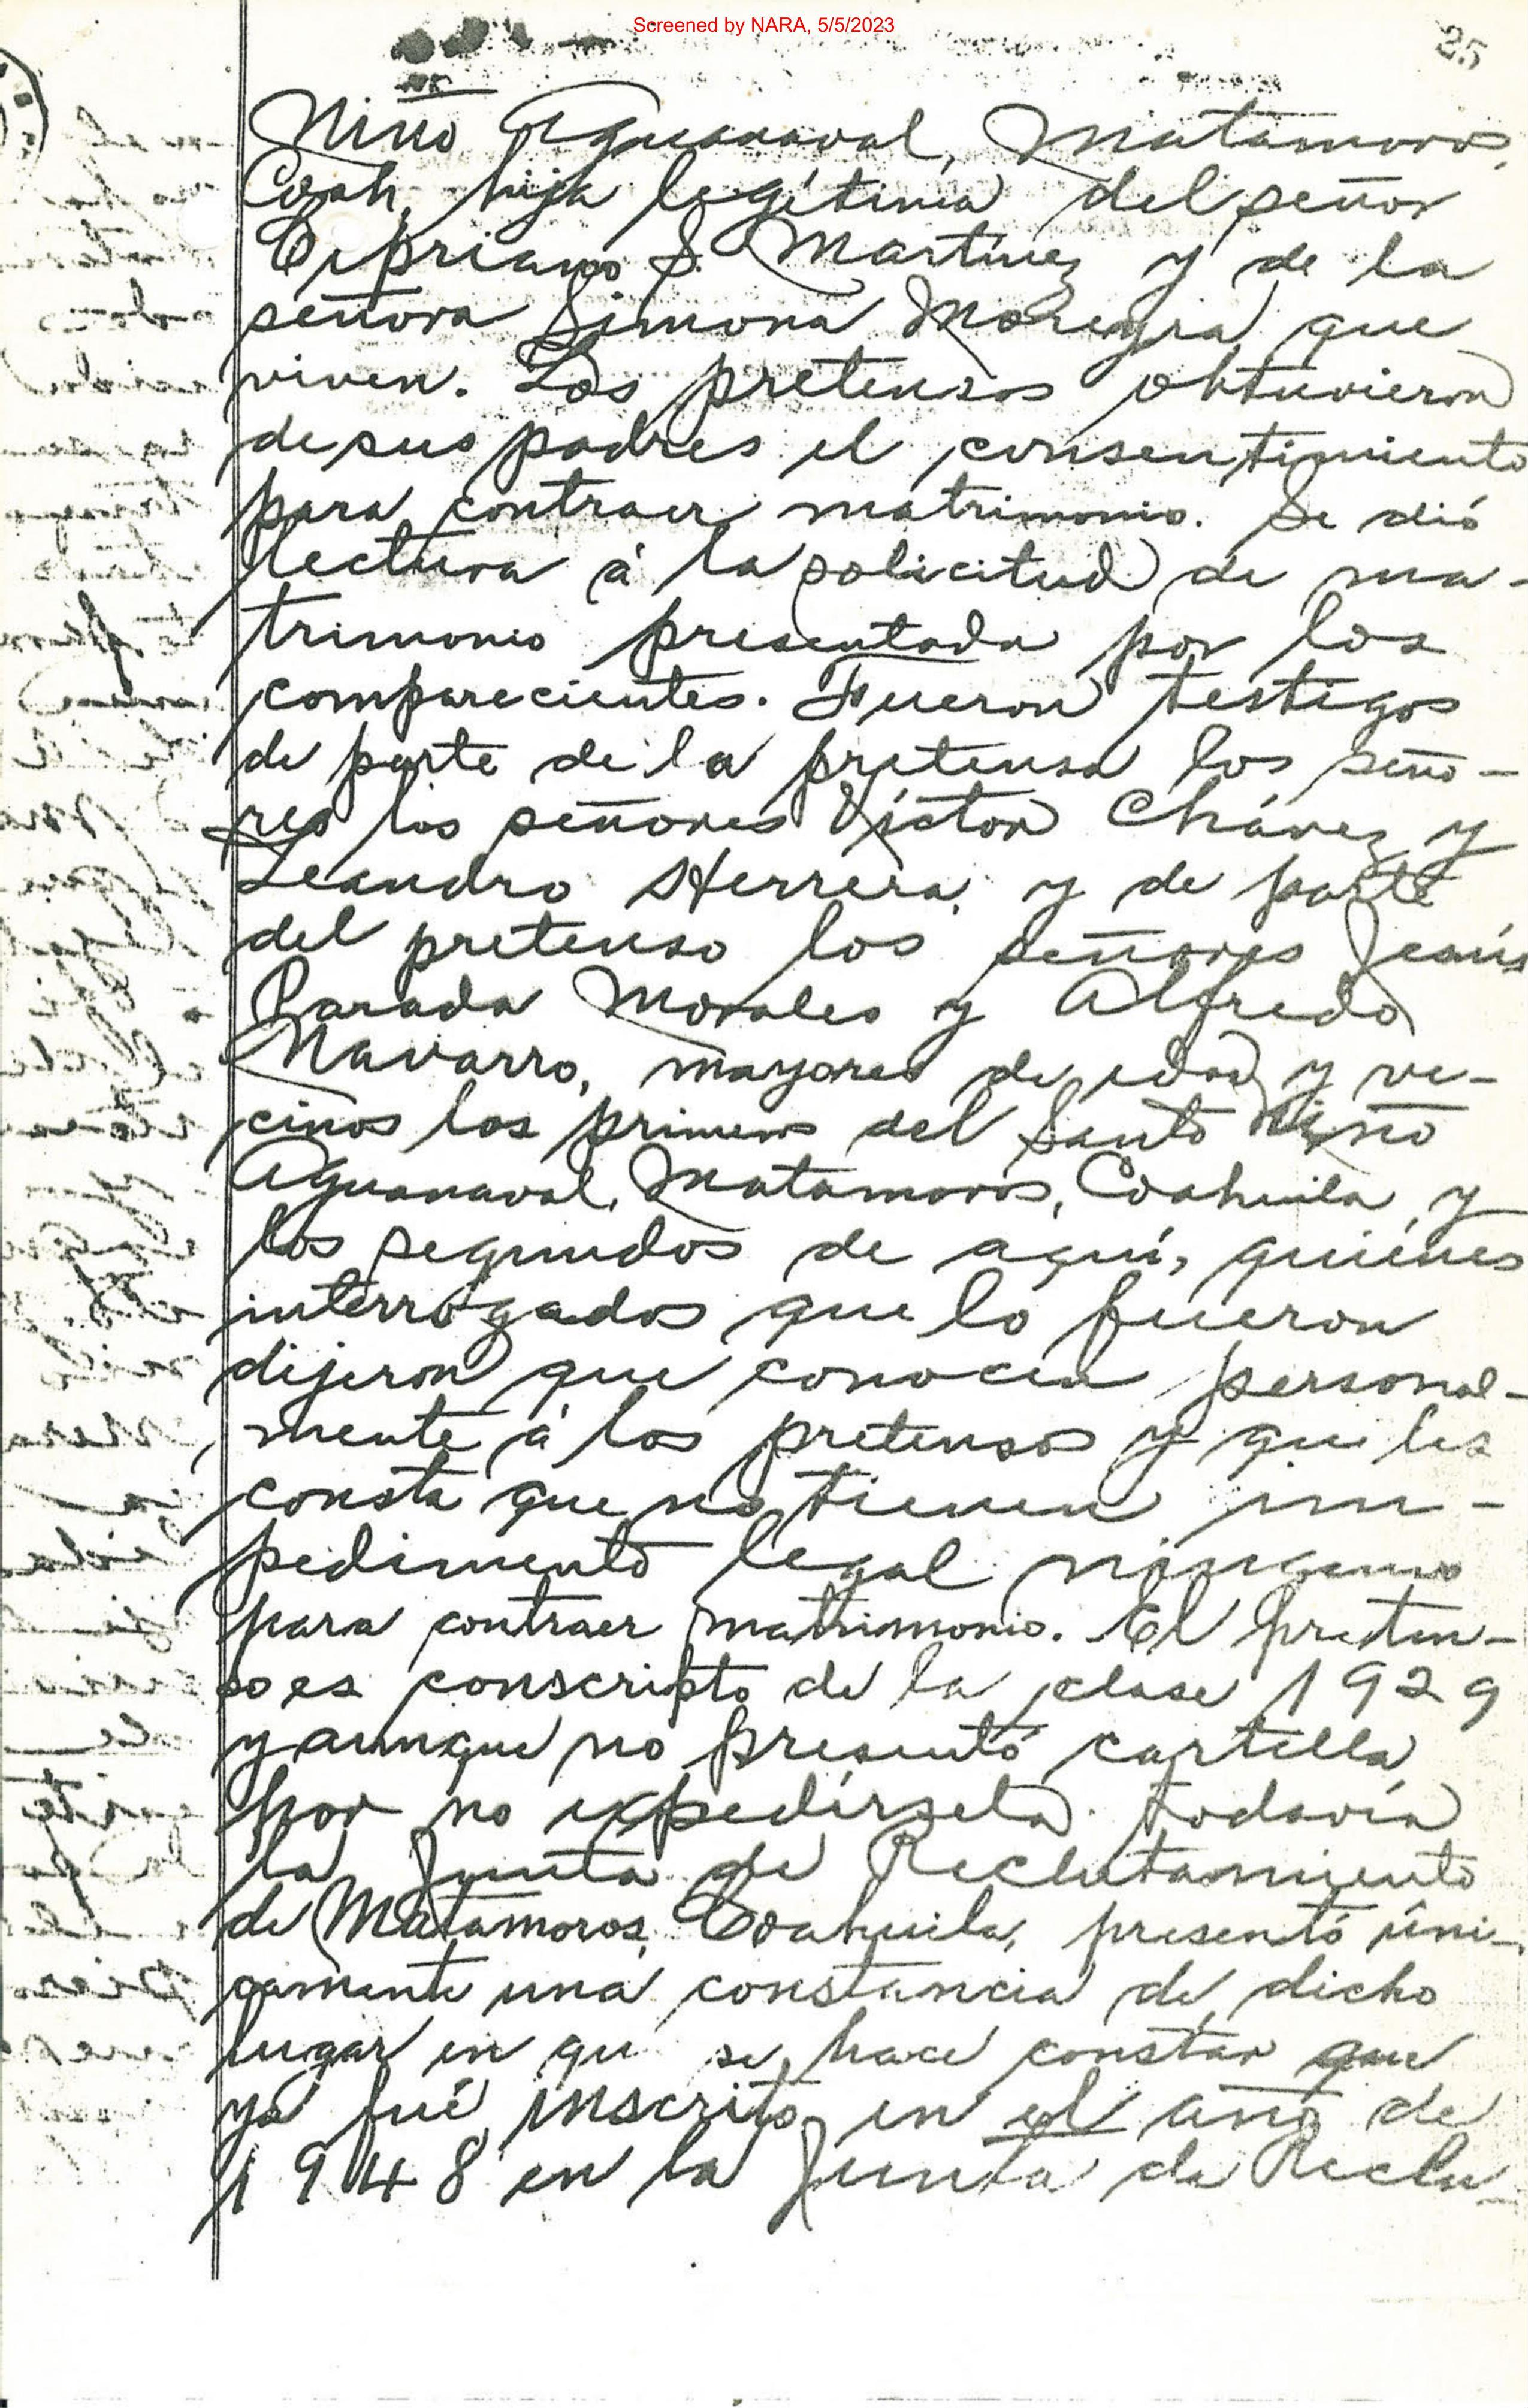 Screened by NARA, 5/5/2023
25
Niño Aguanaval, Matamoros,
Coah, hija legítima del señor
Cipriano S. Martínez y de la
señora Simona Moreyra que
viven. Los pretensos obtuvieron
de sus padres el consentimiento
para contraer matrimonio. Se dió
lectura á la solicitud de ma-
trimonio presentada por los
comparecientes. Fueron testigos
de parte de la pretensa los seño-
res los señores Víctor Chávez y
Leandro Herrera, y de parte
del pretenso los señores Jesús
Parada Morales y Alfredo
Navarro, mayores de edad y ve-
cinos los primeros del Santo Niño
Aguanaval, Matamoros, Coahuila, y
los segundos de aquí, quiénes
interrogados que lo fueron
dijeron que conocen personal-
mente á los pretensos y que les
consta que no tienen im-
pedimento legal ninguno
para contraer matrimonio. El preten-
so es conscripto de la clase 1929
y aunque no presentó cartilla
por no expedírsela todavía
la Junta de Reclutamiento
de Matamoros, Coahuila, presentó úni-
camente una constancia de dicho
lugar en qu se hace constar que
ya fué inscrito en el año de
1948 en la Junta de Reclu-